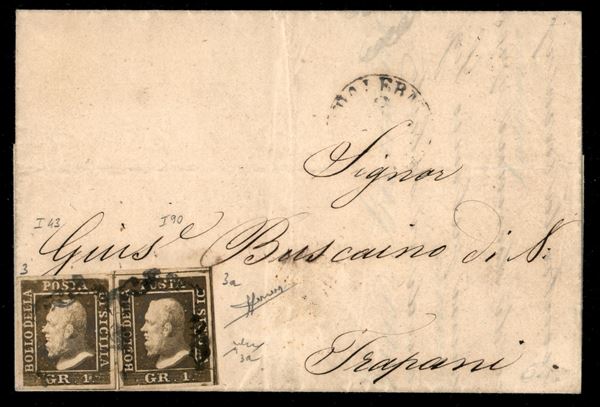 Signor
I 43
I 90
Gius.e Buscaino di N:
Trapani
3
3a
3a
BOLLO DELLA
POSTA
DI SICILIA
GR. 1.
BOLLO DELLA
POSTA
DI SICILIA
GR. 1.